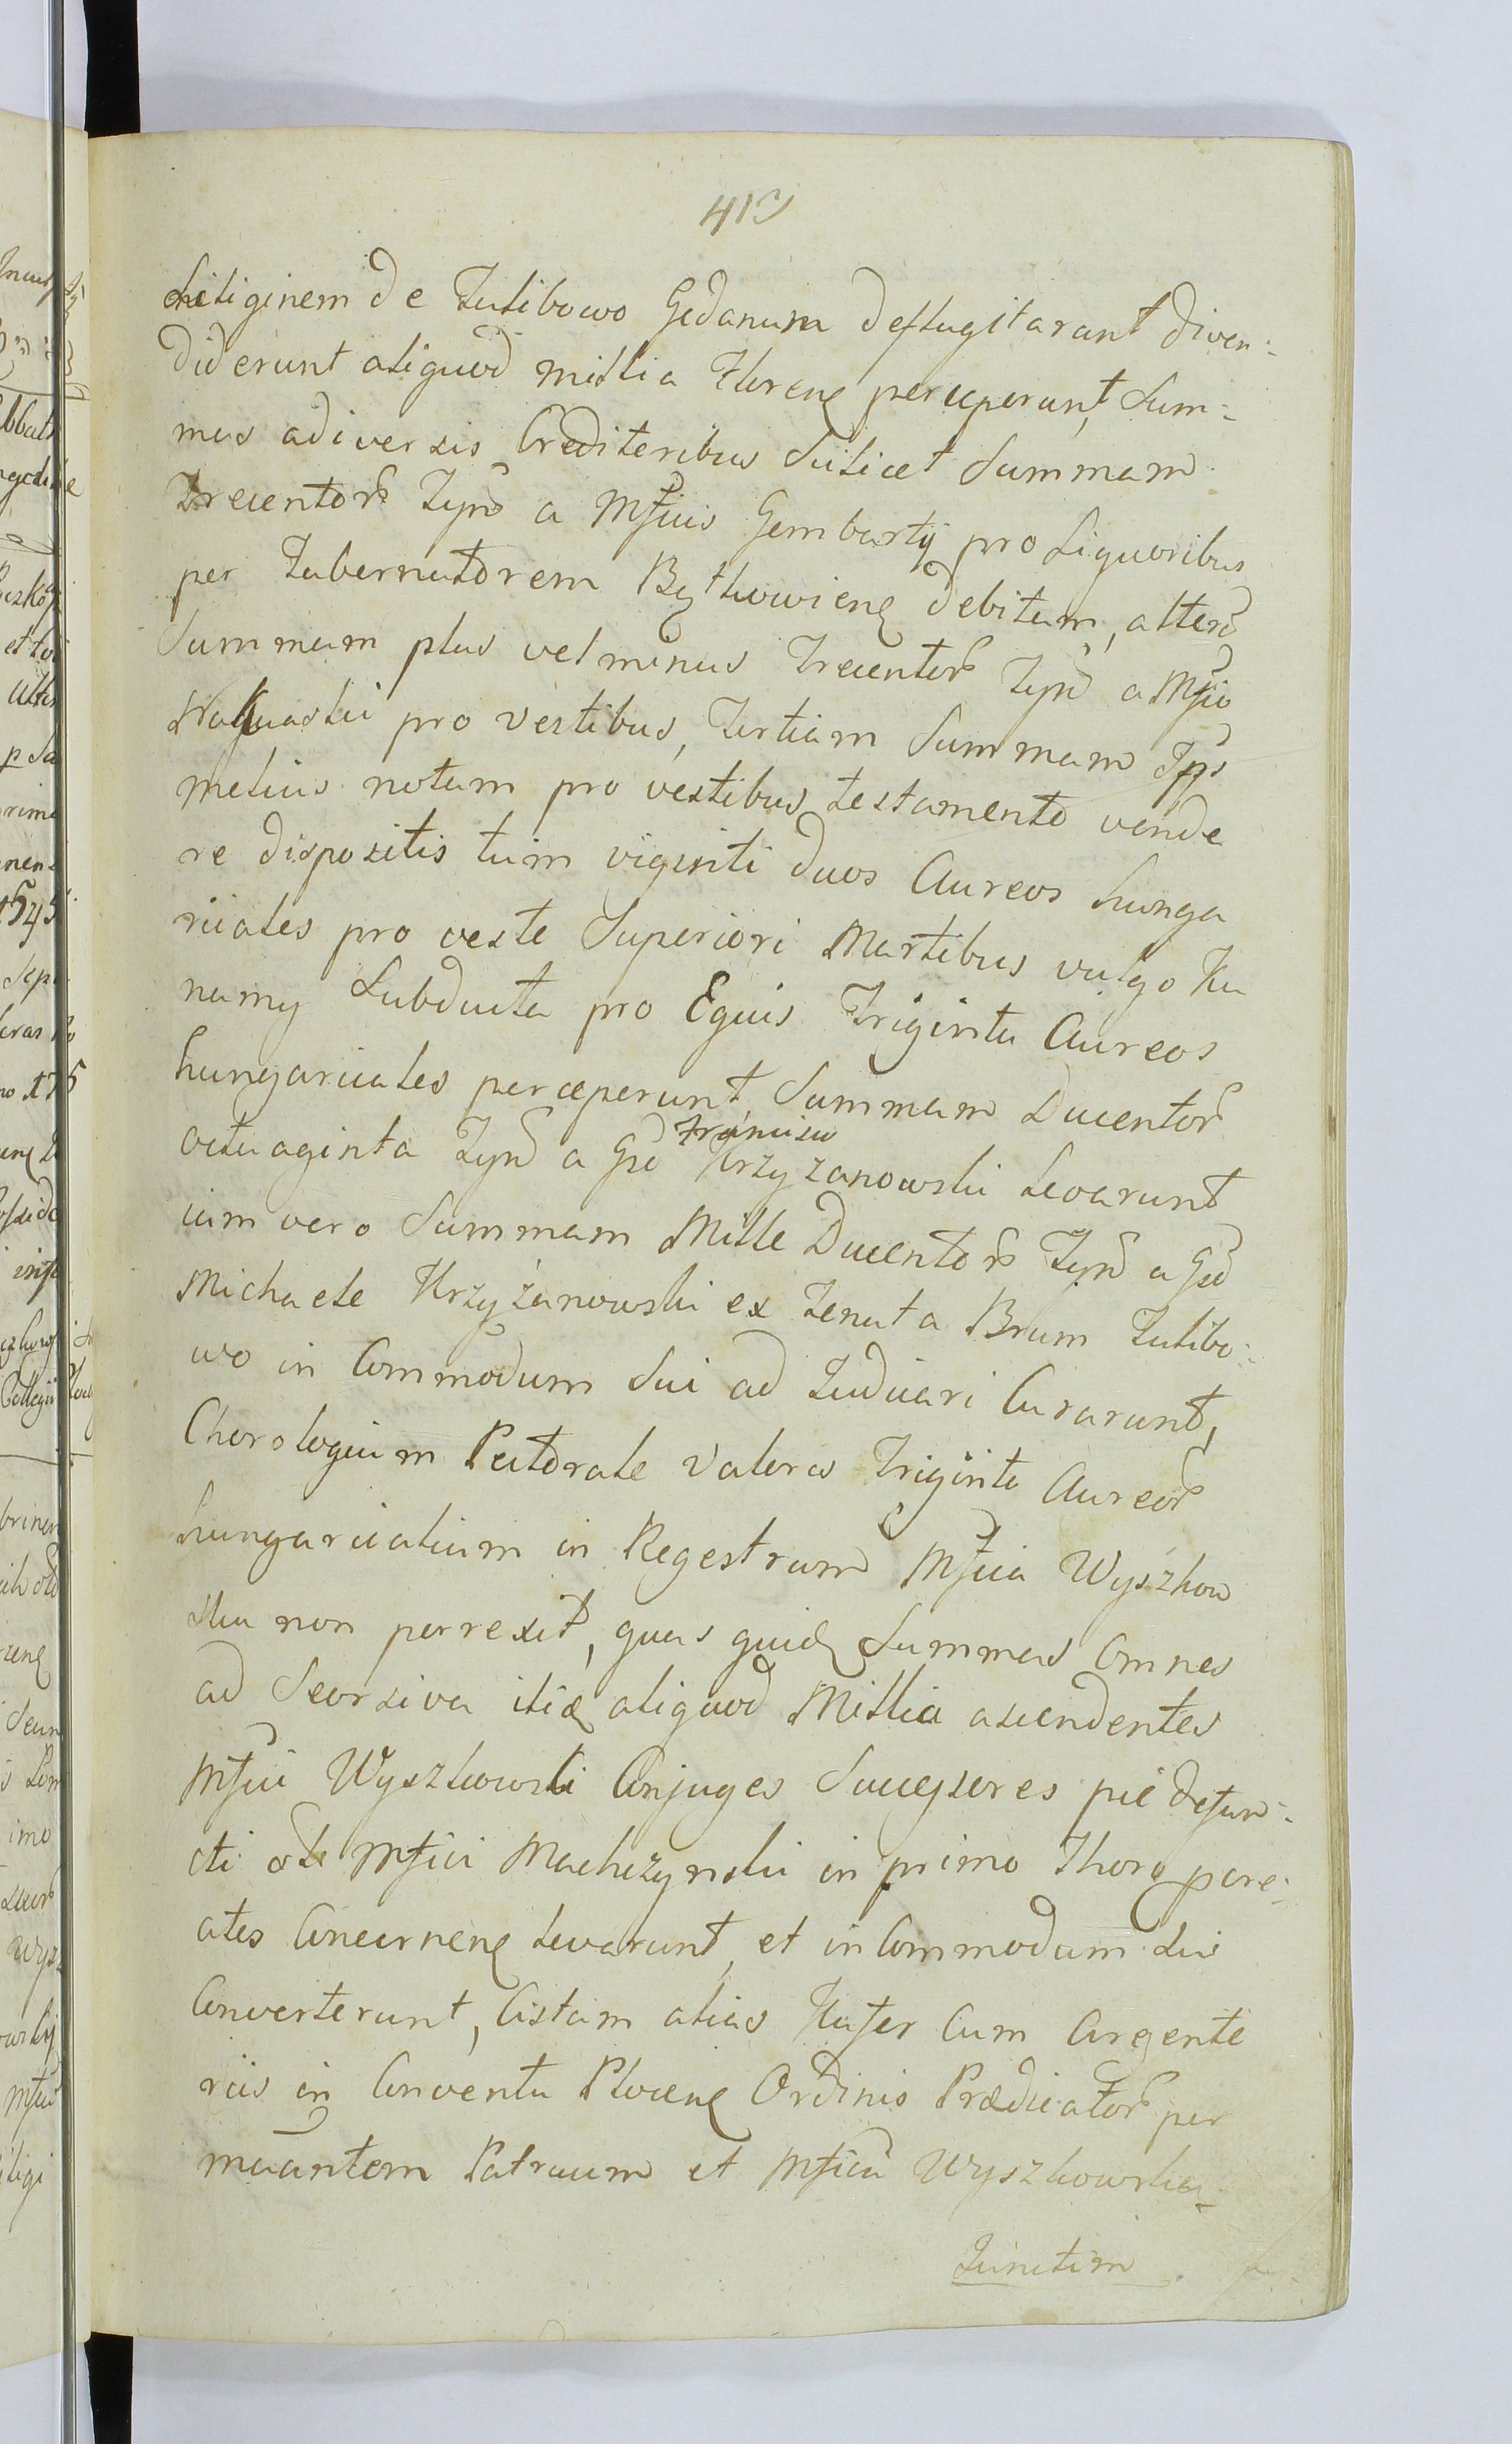 413
Siliginem de Zulibowo Gedanum deflugitarunt diven:
diderunt aliquod millia Floren perceperunt, Sum:
mas adiversis Creditoribus Scilicet Summam
Trecentor Tynf a Mfcis Gembarty pro Liquoribus
per Tabernatorem Bythowien debitam, alteram
Summam plus vel minus Trecentor Tynf a Mfco
pro vestibus, Tertiam Summam Ipsis
melius notam pro vestibus testamento vende
re dispositis tum viginti duos Aureos hunga
ricales pro veste Superiori Martibus vulgo Ku
namy Subducta pro Equis Triginta Aureos
hungaricales perceperunt, Summam Ducentor
octuaginta Tynf a Gso Francisco Krzyzanowski Levarunt
iam vero Summam Mille Ducentor Tynf a Gso
Michaele Krzyżanowski ex Tenuta Bnum Zulibo:
wo in Commodum Sui ad Iudicari Curarunt,
Chorologium Pectorale valoris Triginta Aureor
hungaricalium in Regestrum Mfca Wyszkow
ska non porrexit, quas quid Summas Omnes
ad Seorsiva itiq aliquod Millia ascendentes
Mfci Wyszkowski Conjuges Successores pie defun:
cti olt Mfici Machczynski in primo Thoro pare:
ates Concernen Levarunt, et in Commodum sui
Converterunt, Cistam alias Kufer Cum Argente
riis in Conventu Plocen Ordinis Prædicator per
meantem Patruum et Mficam Wyszkowska
Iunctim